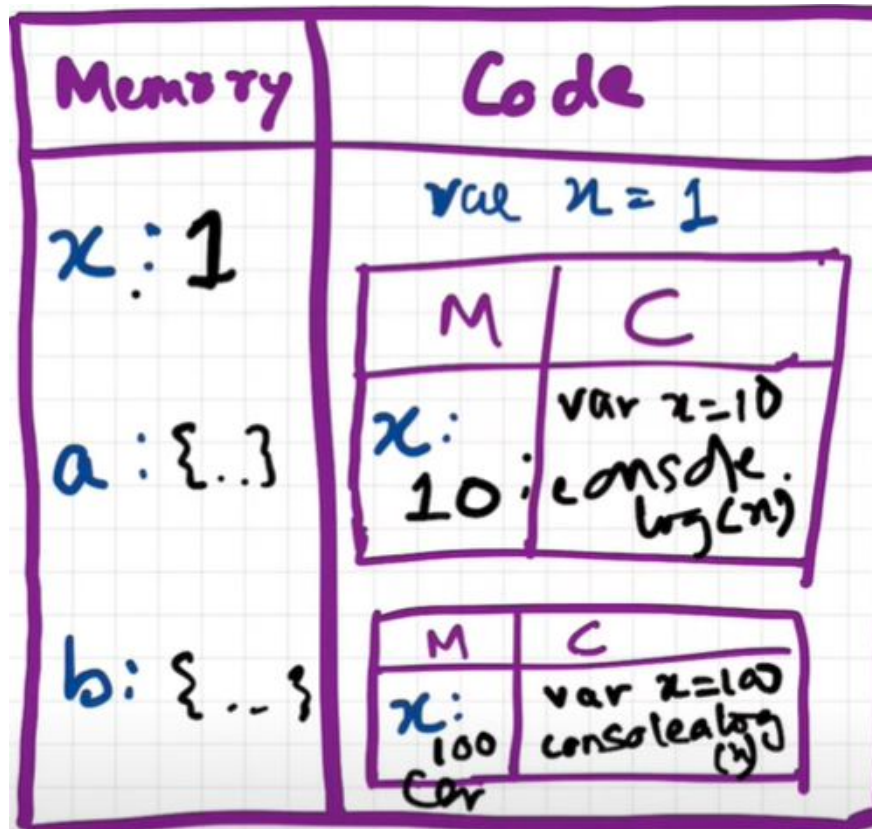 Memory
Code
x : 1
var x = 1
M
C
x:
10
var x=10
console.
log(x)
a : {..}
b: {...}
M
C
x:
100
var x=100
console.log
(x)